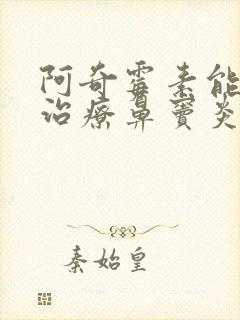 阿奇霉素能
治療鼻竇炎
秦始皇